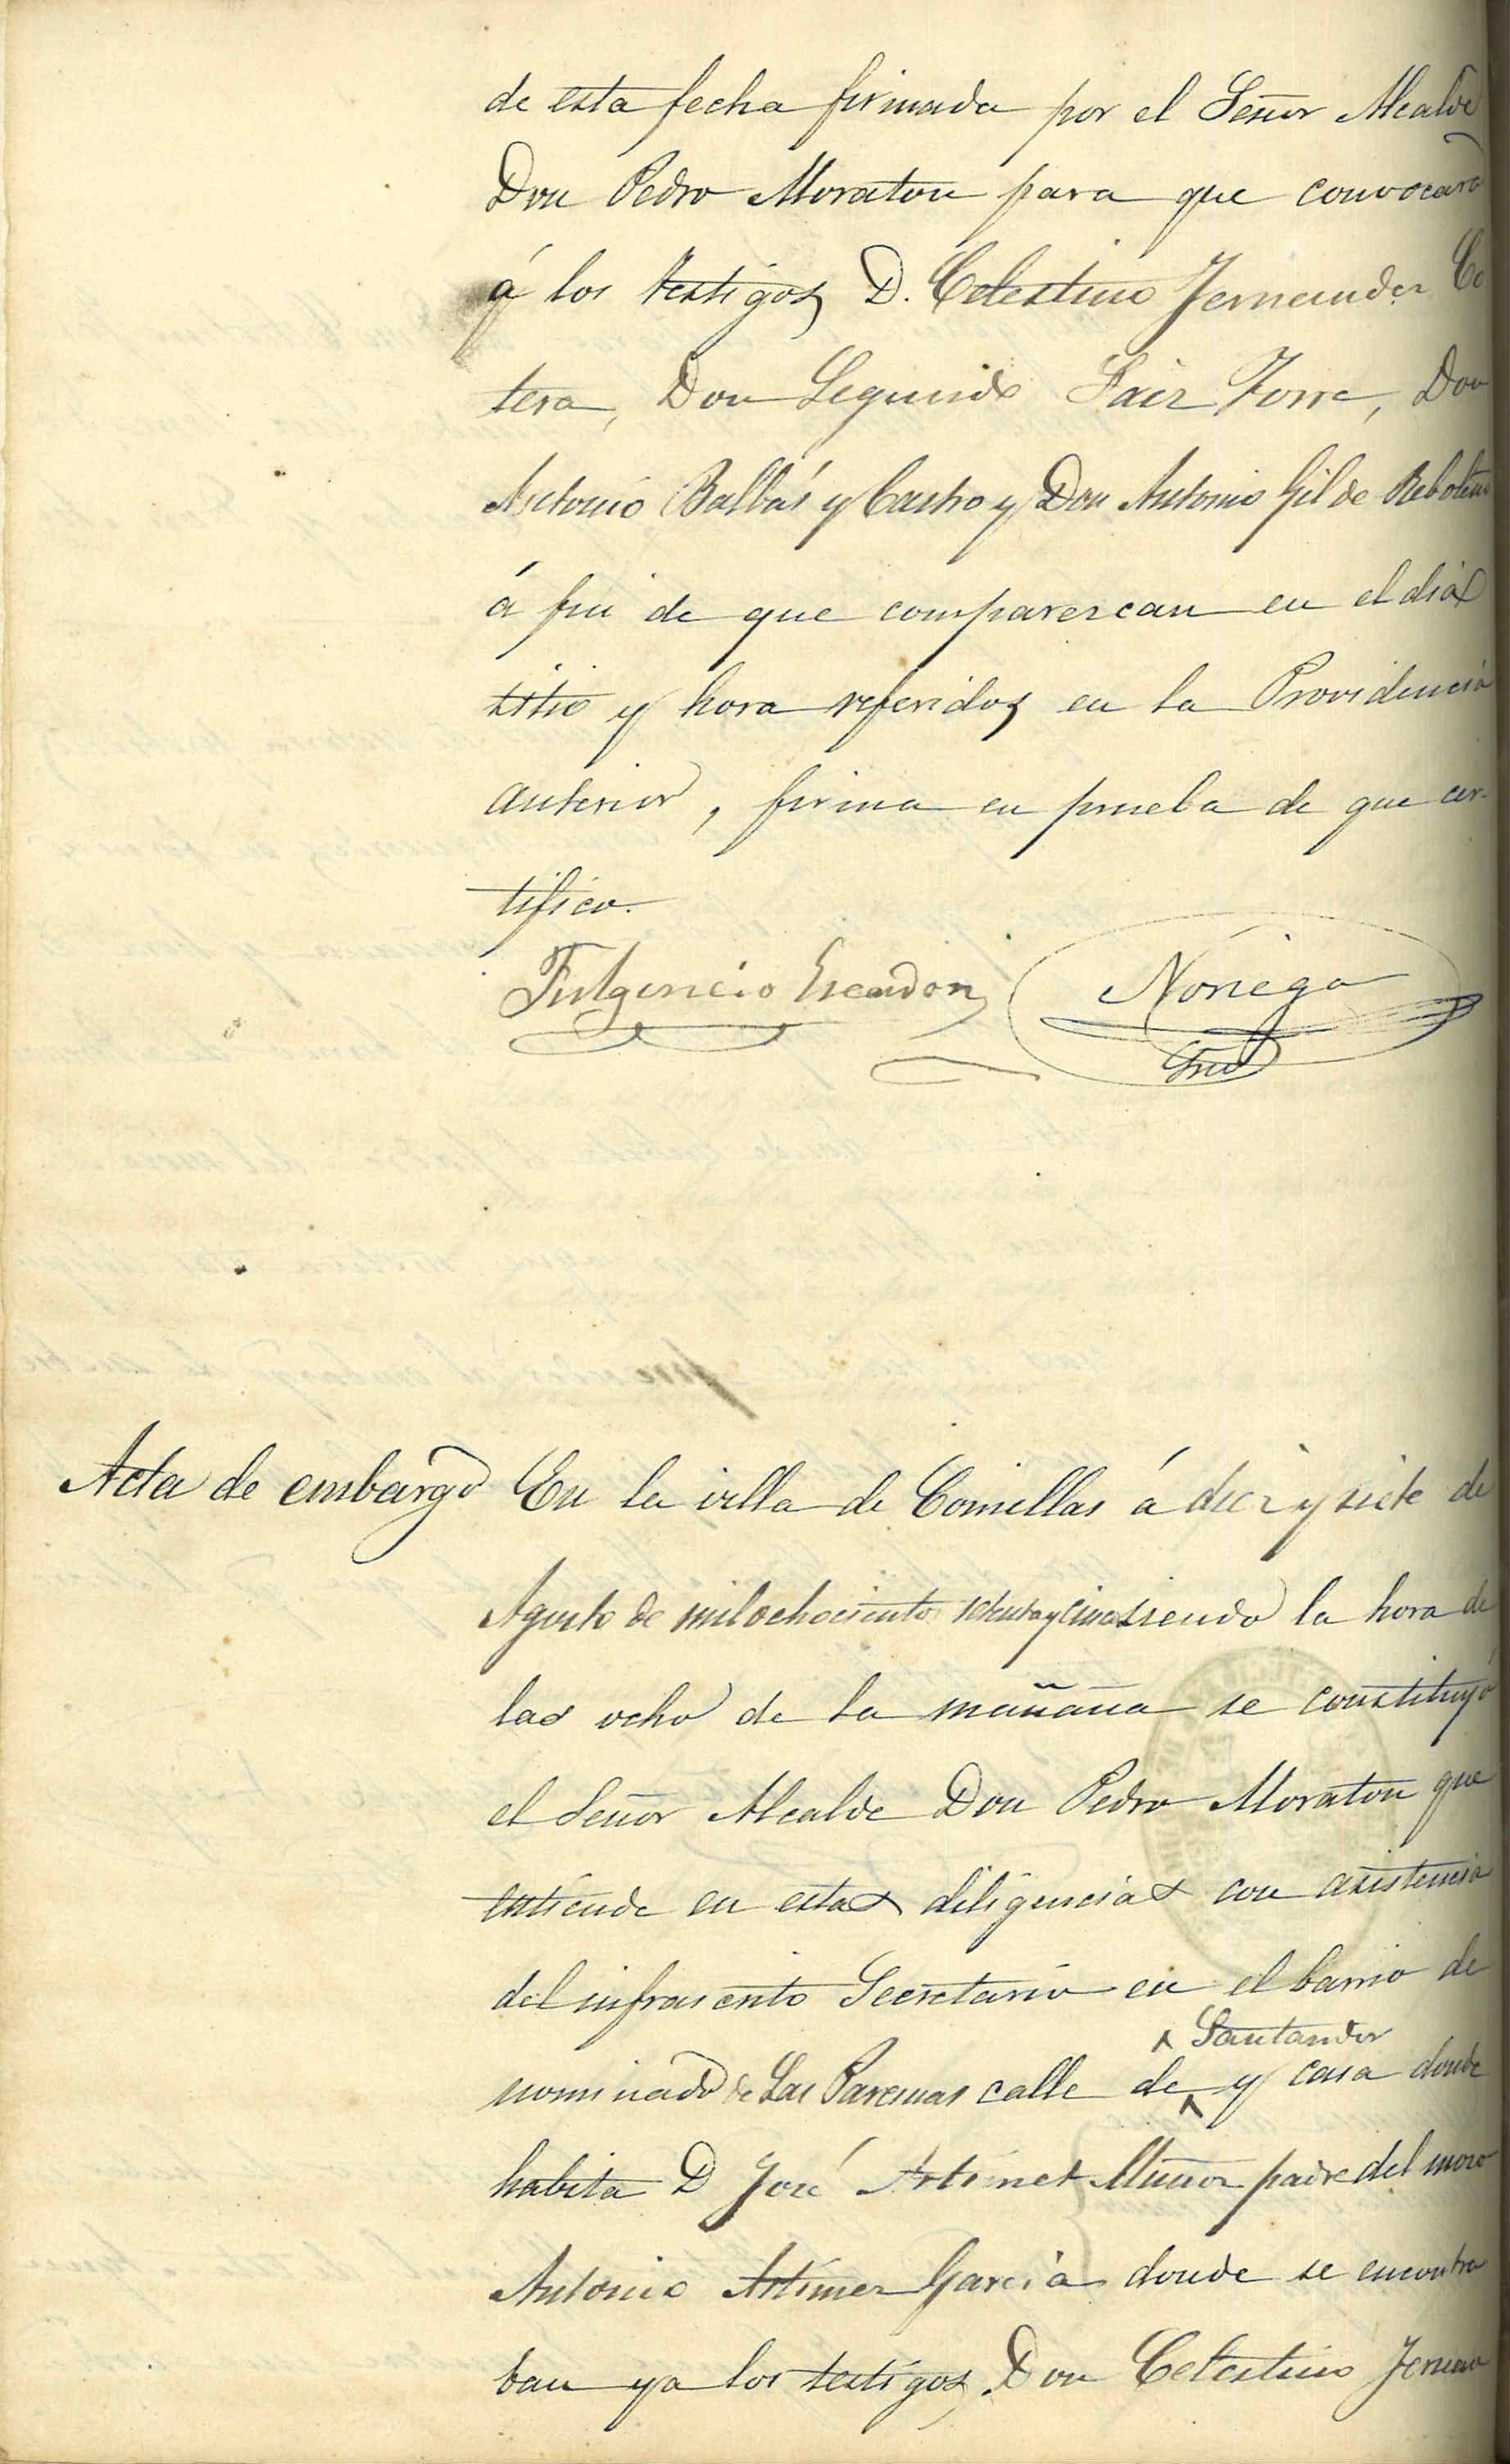 de esta fecha firmada por el Señor Alcalde
Don Pedro Moraton para que convocara
á los testigos D. Celestino Fernandez Co
tera, Don Segundo Saiz Torre, Don
Antonio Balbás y Castro y Don Antonio Gil de
á fin de que comparezcan en el dia
sitio y hora referidos en la Providencia
anterior, firma en prueba de que cer-
tifico.
Fulgencio Escandon Noriega
Srio
Acta de embargo En la villa de Comillas á diez y siete de
Agosto de mil ochocientos setenta y cinco siendo la hora de
las ocho de la mañana se constituyó
el Señor Alcalde Don Pedro Moraton que
entiende en estas diligencias con asistencia
del infrascrito Secretario en el barrio de
Santander
nominado de Las calle de y casa donde
habita D José Artimez Muñoz padre del mozo
Antonio Artimez Garcia donde se encontra
ban ya los testigos Don Celestino Fernan